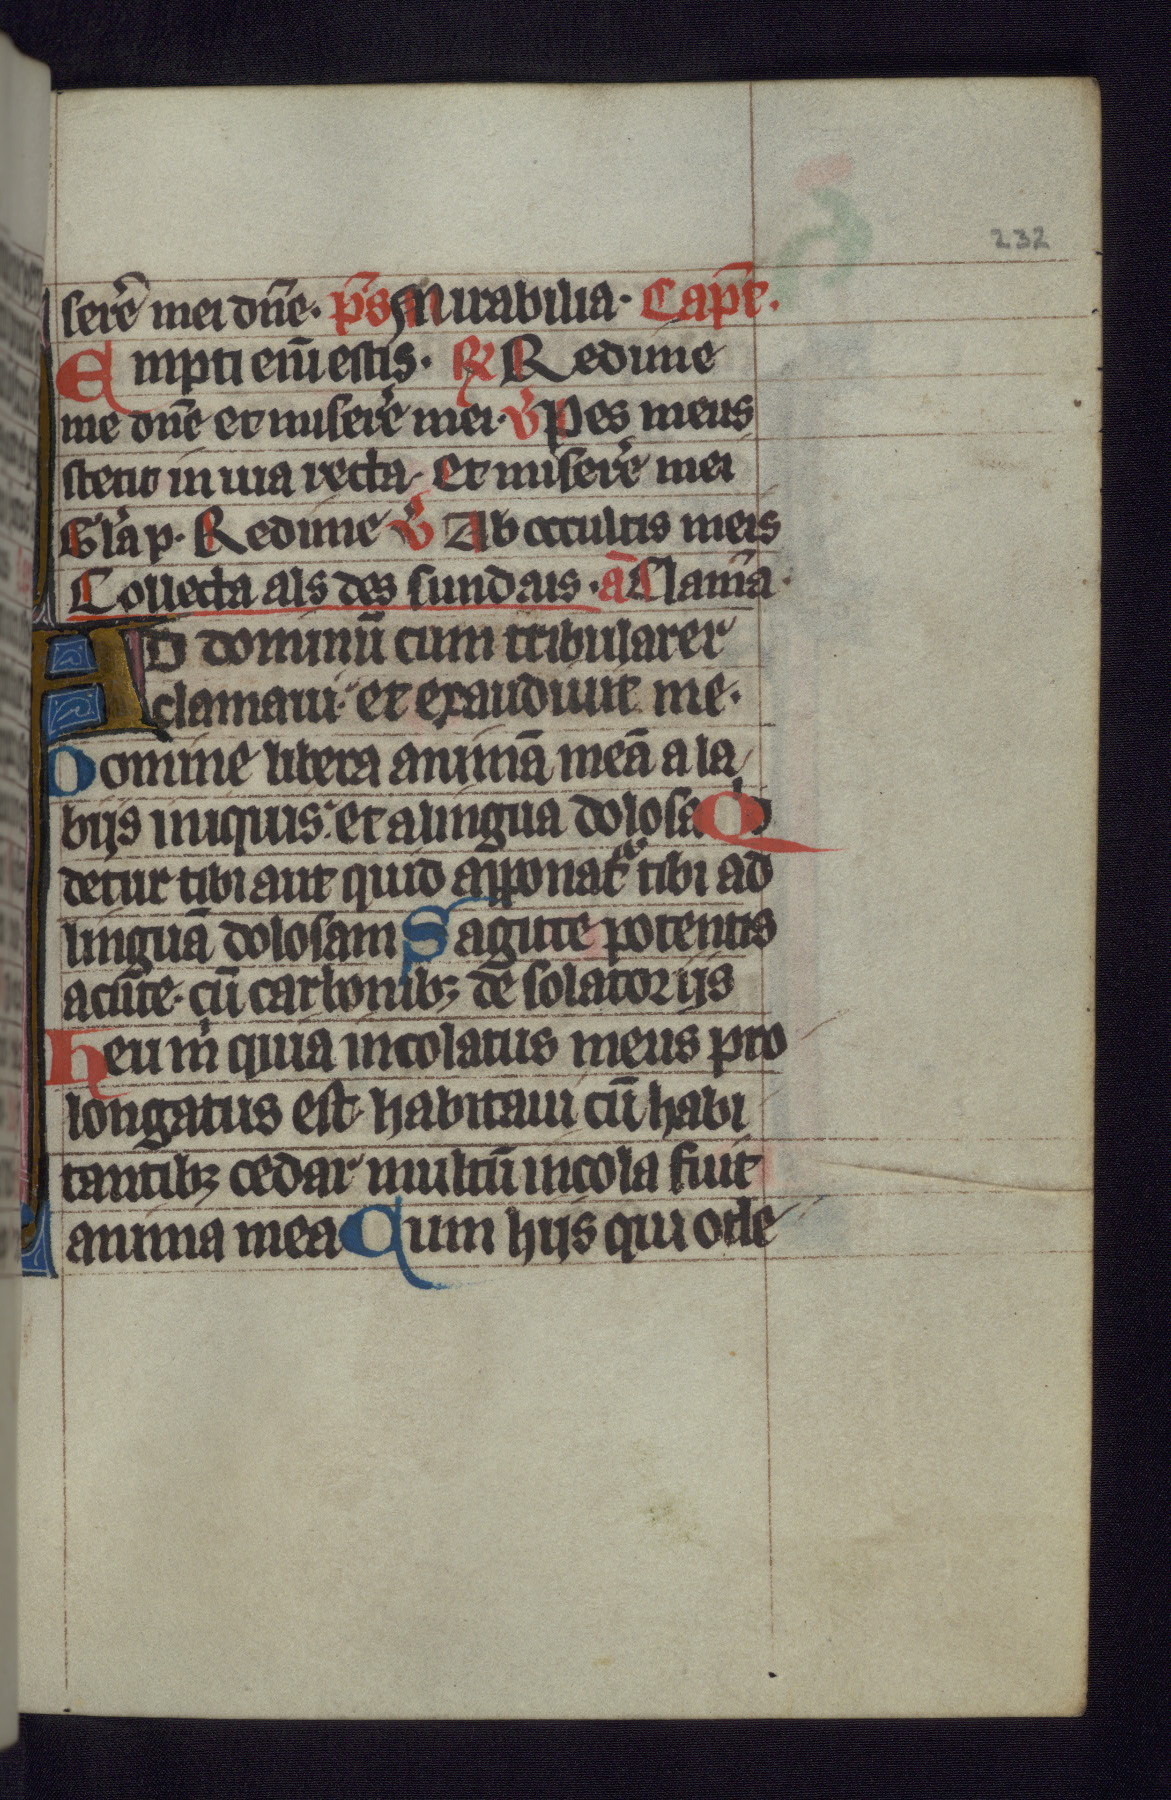 232
serẽ mei dñe. p̃s Mirabilia. Capt̃.
Empti em̃ estis. R̃ Redime
me dñe et miserẽ mei. v̾ Pes meus
stetit in via recta. Et miserẽ mei
Gl̃a p. Redime v̾ Ab occultis meis
Collecta als des sundais. ã Clam̃a.
AD dominũ cum tribularer
clamaui. et exaudiuit me.
Domine libera animã meã a la
bijs iniquis. et a lingua dolosa Qͥd
detur tibi aut quid apponat᷑ tibi ad
linguã dolosam Sagitte potentis
acute. cũ carbonibꝫ de solatorijs
Heu m̃ quia incolatus meus pro
longatus est habitaui cũ habi
tantibꝫ cedar multũ incola fuit
anima mea Cum hijs qui ode